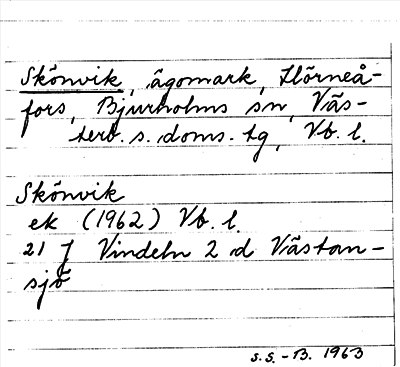 Skönvik, ägomark, Hörneå-
fors, Bjurholms sn, Väs-
terb. s. doms. tg, Vb. l.
Skönvik
ek (1962) Vb. l.
21 J Vindeln 2 d Västan-
sjö
s.s. - B. 1963